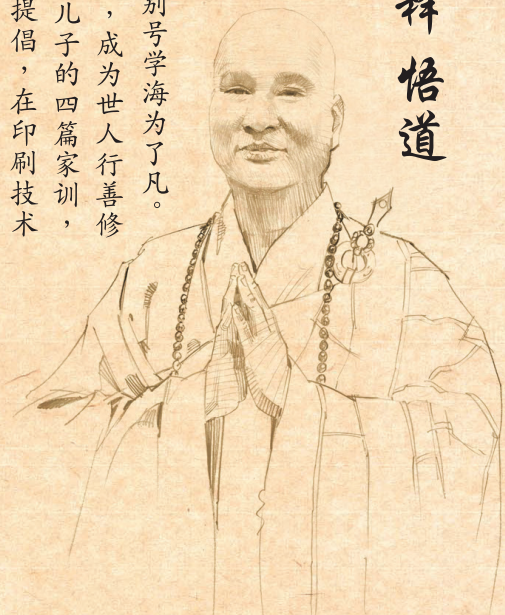 释悟道
别号学海为了凡。
，成为世人行善修
儿子的四篇家训，
提倡，在印刷技术